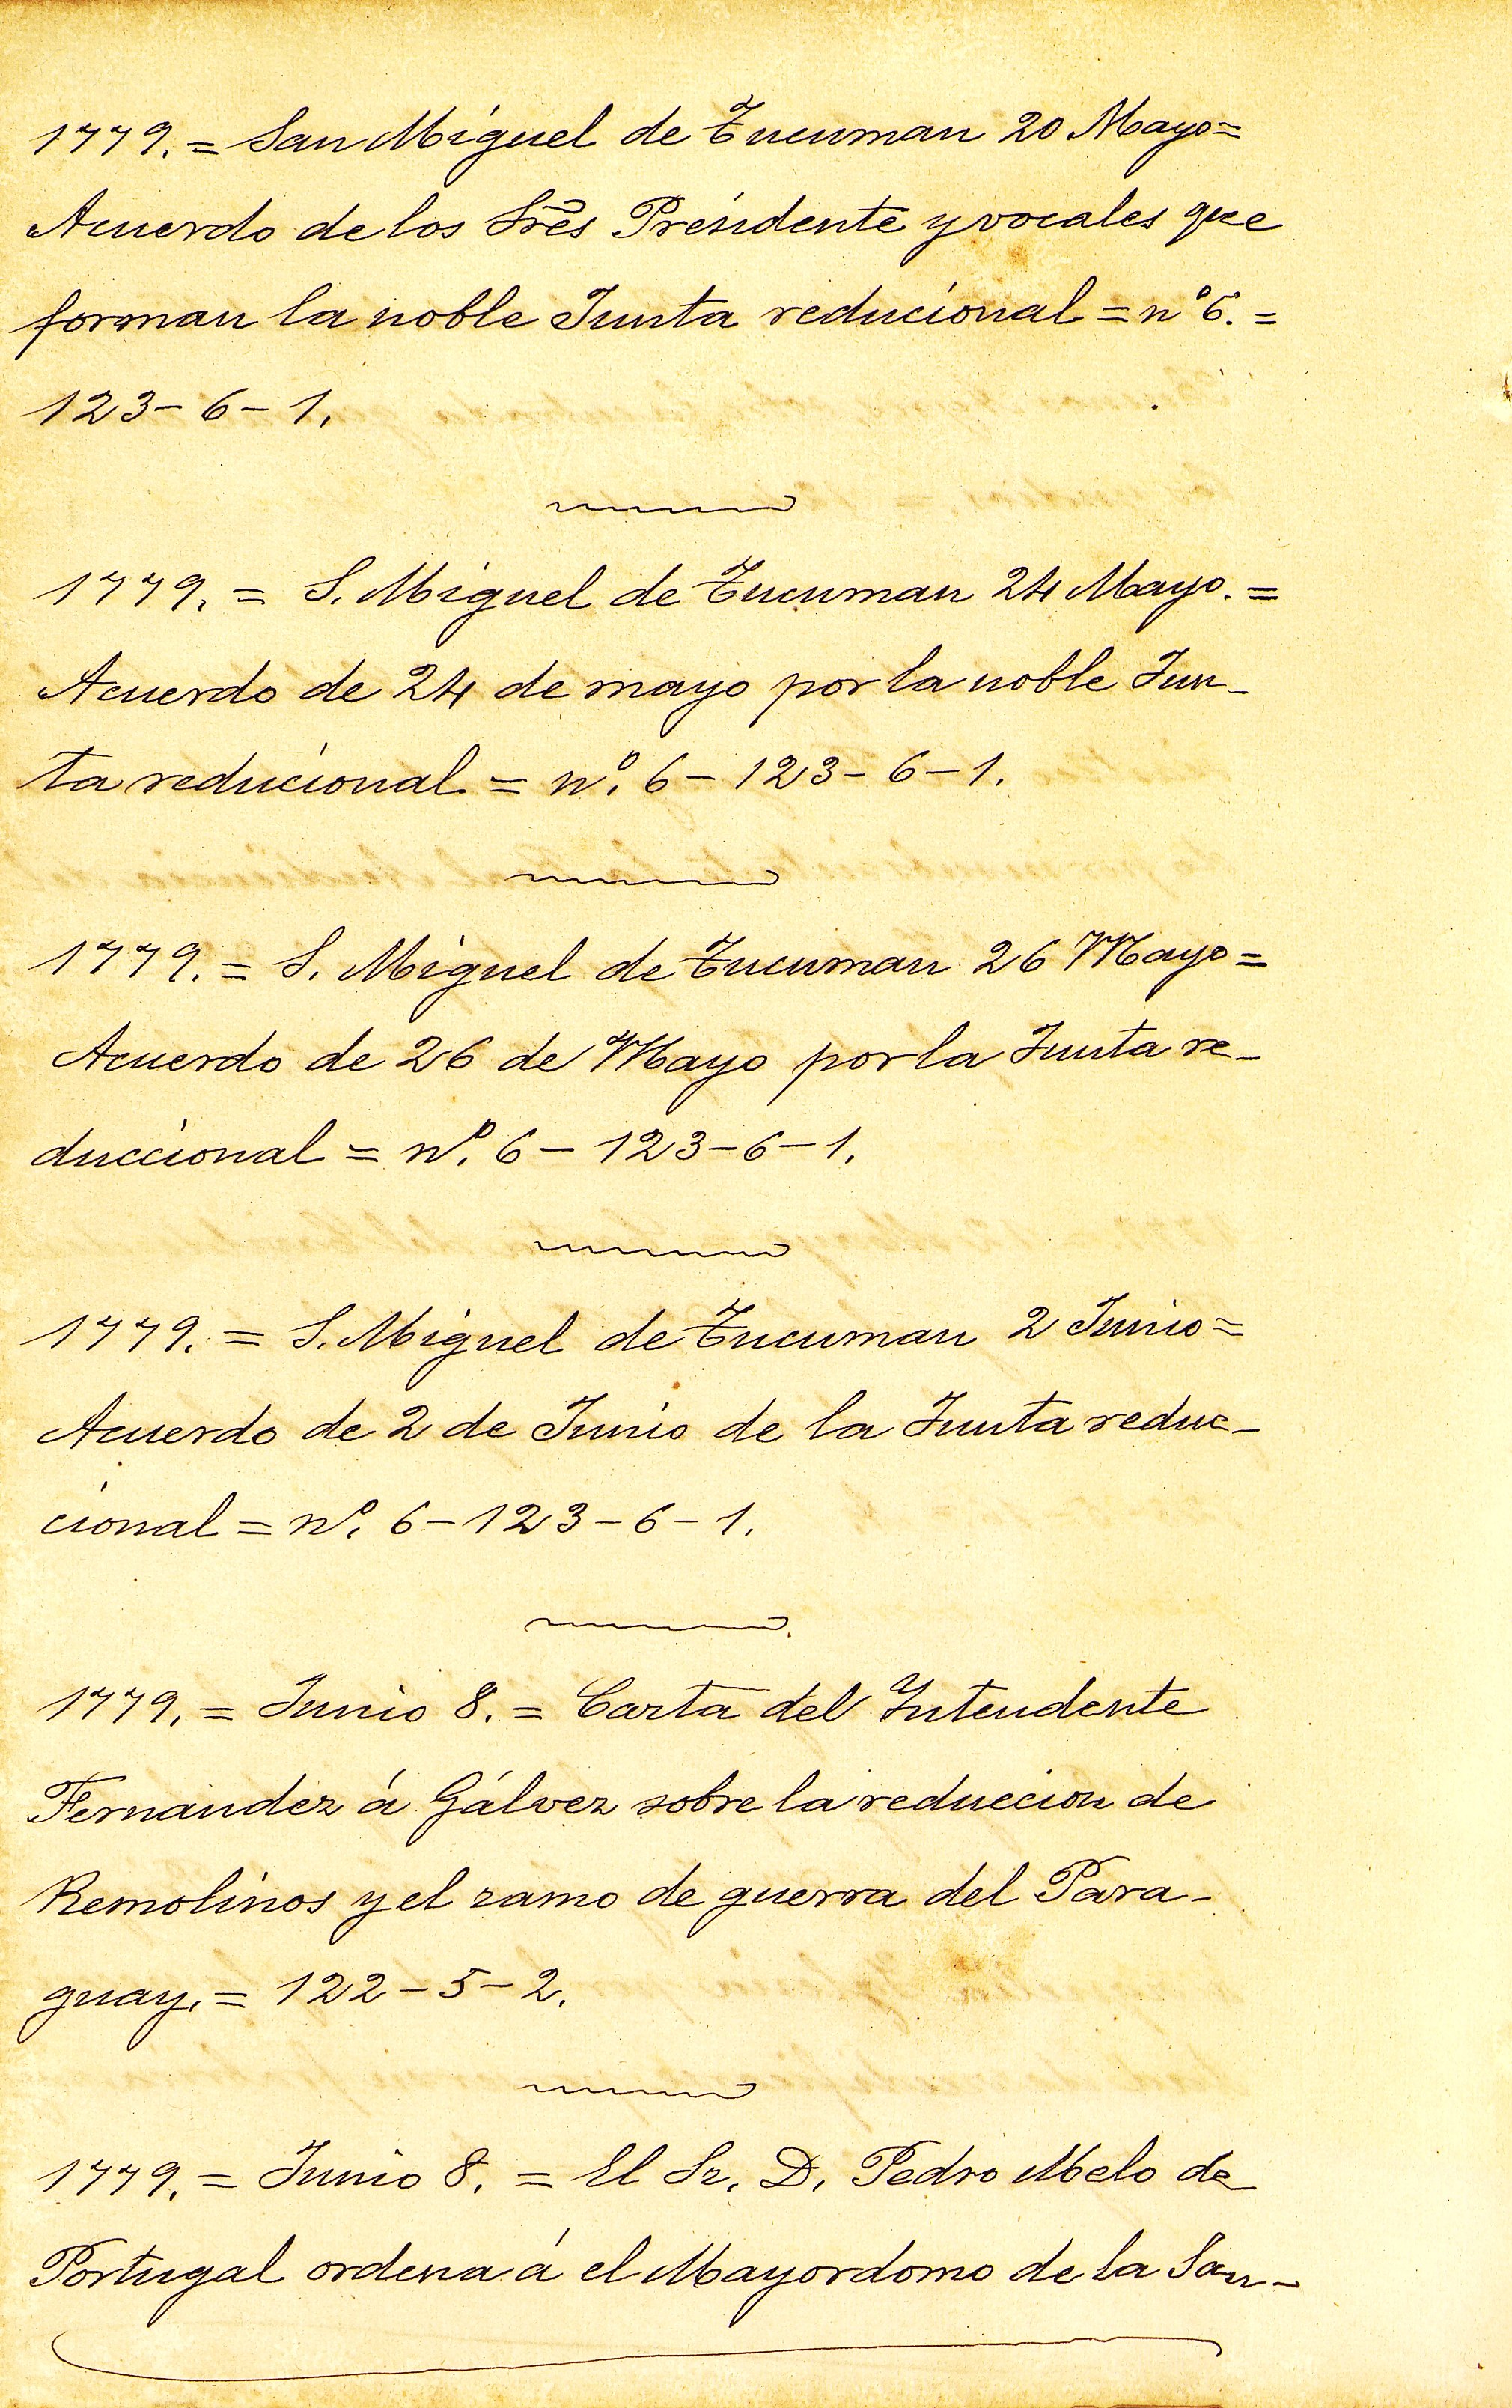 1779. = San Miguel de Tucuman 20 Mayo =
Acuerdo de los Sres Presidente y vocales que
forman la noble Junta reducional = nº 6. =
123 - 6 - 1.
1779. = S. Miguel de Tucuman 24 Mayo. =
Acuerdo de 24 de mayo por la noble Jun-
ta reducional = nº. 6 - 123 - 6 - 1.
1779. = S. Miguel de Tucuman 26 Mayo =
Acuerdo de 26 de Mayo por la Junta re-
duccional = nº. 6 - 123 - 6 - 1.
1779. = S. Miguel de Tucuman 2 Junio =
Acuerdo de 2 de Junio de la Junta reduc-
cional = nº. 6 - 123 - 6 - 1.
1779. = Junio 8. = Carta del Intendente
Fernandez á Gálvez sobre la reduccion de
Remolinos y el ramo de guerra del Para-
guay. = 122 - 5 - 2.
1779. = Junio 8. = El Sr. D. Pedro Melo de
Portugal ordena á el Mayordomo de la San-